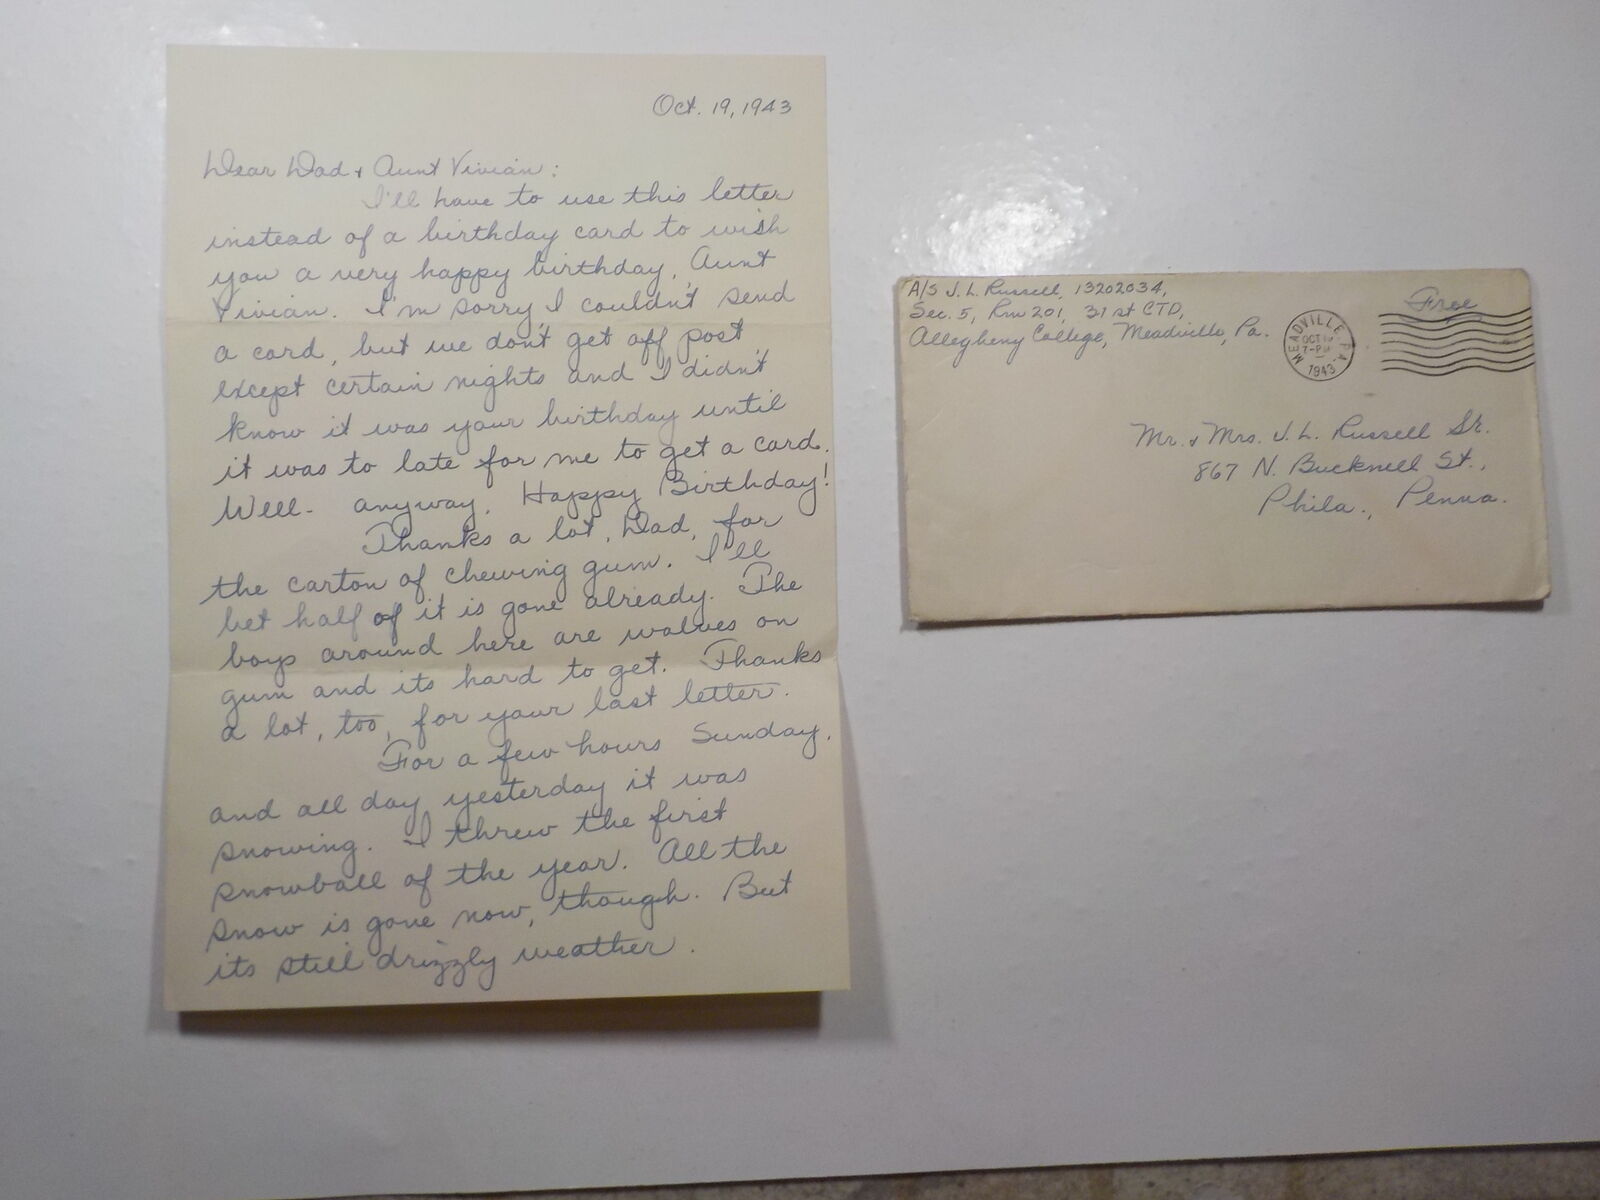 Oct. 19, 1943
Dear Dad & Aunt Vivian:
I'll have to use this letter
instead of a birthday card to wish
you a very happy birthday, Aunt
Vivian. I'm sorry I couldn't send
a card, but we don't get off post
except certain nights and I didn't
know it was your birthday until
it was to late for me to get a card.
Well - anyway, Happy Birthday!
Thanks a lot, Dad, for
the carton of chewing gum. I'll
bet half of it is gone already. The
boys around here are wolves on
gum and its hard to get. Thanks
a lot, too, for your last letter.
For a few hours Sunday,
and all day yesterday it was
snowing. I threw the first
snowball of the year. All the
snow is gone now, though. But
its still drizzly weather.
A/S J. L. Russell, 13202034,
Sec. 5, Rm 201, 31st CTD,
Allegheny College, Meadville, Pa.
Free
MEADVILLE PA.
OCT
7-PM
1943
Mr. & Mrs. J. L. Russell Sr.
867 N. Bucknell St.,
Phila., Penna.